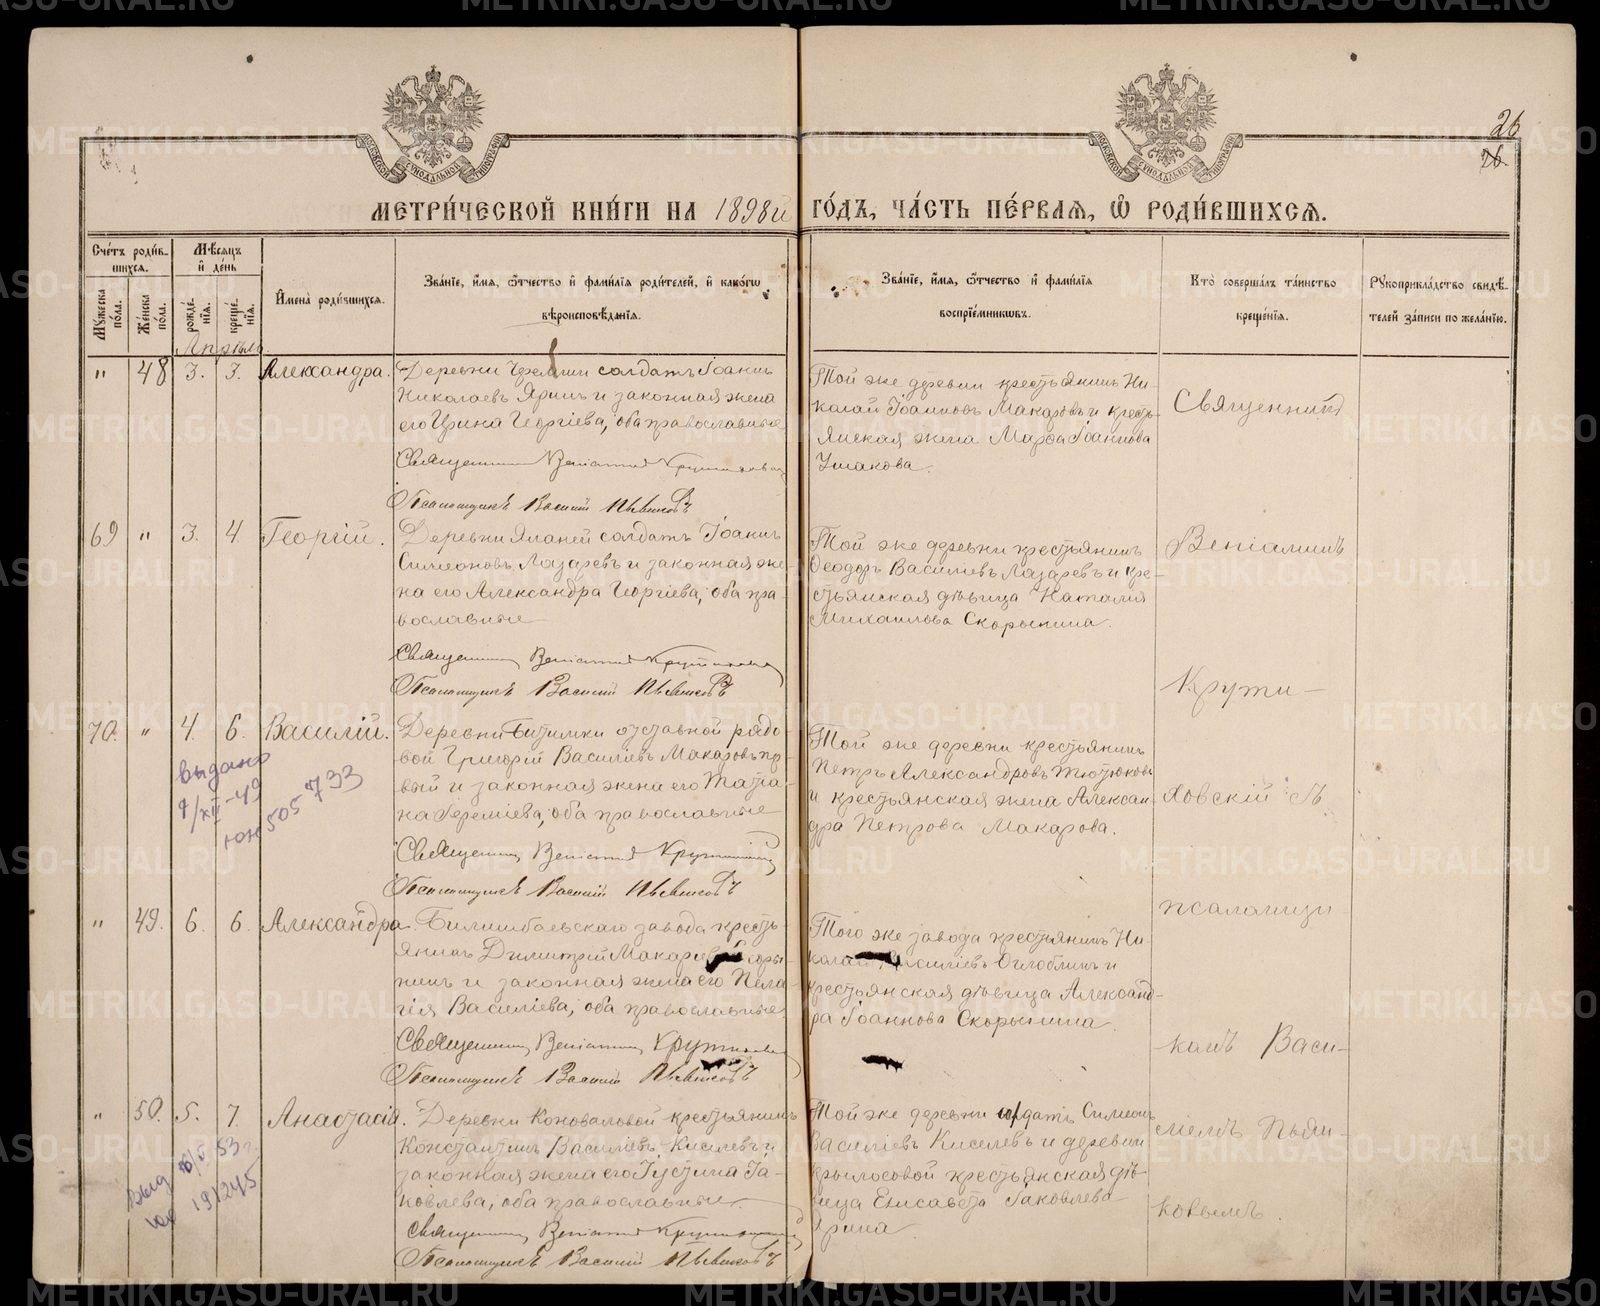 26
26.
МЕТРИ́ЧЕСКОЙ КНИ́ГИ НА 1898й ГО́ДЪ, ЧА́СТЬ ПЕ́РВАЯ, Ѽ РОДИ́ВШИХСЯ.
Сче́тъ роди́вшихся.
Му́жеска по́ла.
Же́нска по́ла.
Мѣ́сяцъ и҆ де́нь
рожде́нїѧ.
креще́нїѧ.
И҆мена̀ роди́вшихсѧ.
Зва́нїе, и҆́мѧ, ѻ҆́тчество и҆ фами́лїѧ роди́телей, и҆ како́гѡ
вѣроисповѣ́данїѧ.
Зва́нїе, и҆́мѧ, ѻ҆́тчество и҆ фами́лїѧ
воспрїе́мниковъ.
Кто̀ соверша́лъ та́инство
креще́нїѧ.
Рꙋкоприкла́дство свидѣ́-
телей за́писи по жела́нїю.
Апрѣль.
" 48 3. 3. Александра.
Деревни солдатъ Іоаннъ
Николаевъ Яринъ и законная жена
его Ирина Георгіева, оба православные
Священникъ Веніаминъ Крутиховскій
Псаломщикъ Василій Пьянковъ
Той же деревни крестьянинъ Ни-
колай Іоанновъ Макаровъ и кресть-
янская жена Марѳа Іоаннова
Ушакова.
69 " 3. 4. Георгій.
Деревни солдатъ Іоаннъ
Симеоновъ Лазаревъ и законная же-
на его Александра Георгіева, оба пра-
вославные
Священникъ Веніаминъ Крутиховскій
Псаломщикъ Василій Пьянковъ
Той же деревни крестьянинъ
Ѳеодоръ Василіевъ Лазаревъ и кре-
стьянская дѣвица Наталія
Михаилова Скорынина.
70. " 4. 6. Василій.
выдано
9/XII-49
юн 505733
Деревни Битимки отставной рядо-
вой Григорій Василіевъ Макаровъ пр-
вый и законная жена его Татіа-
на Іереміева, оба православные
Священникъ Веніаминъ Крутиховскій
Псаломщикъ Василій Пьянковъ
Той же деревни крестьянинъ
Петръ Александровъ
и крестьянская жена Алексан-
дра Петрова Макарова.
" 49. 6. 6. Александра.
Билимбаевскаго завода кресть-
янинъ Димитрій Макаровъ Скоры-
нинъ и законная жена его Пела-
гія Василіева, оба православные
Священникъ Веніаминъ Крутиховскій
Псаломщикъ Василій Пьянковъ
Того же завода крестьянинъ Ни-
колай Василіевъ Оглоблинъ и
крестьянская дѣвица Александ-
ра Іоаннова Скорынина
" 50. 5. 7. Анастасія.
выд
191245
Деревни Коноваловой крестьянинъ
Константинъ Василіевъ Киселевъ и
законная жена его Іустина Іа-
ковлева, оба православные.
Священникъ Веніаминъ Крутиховскій
Псаломщикъ Василій Пьянковъ
Той же деревни солдатъ Симеонъ
Василіевъ Киселевъ и деревни
Крылосовой крестьянская дѣ-
вица Елисавета Іаковлева
Ярина
Священникъ
Веніаминъ
Крути-
ховскій съ
псаломщи-
комъ Васи-
ліемъ Пьян-
ковымъ.
METRIKI.GASO-URAL.RU